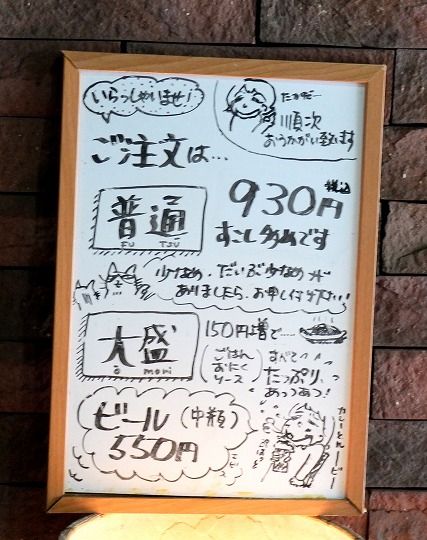 いらっしゃいませ!
ただ今…
順次
おうかがい致します
ご注文は…
普通
FU TSŪ
930円
税込
すこし多めです
少なめ・だいぶ少なめ
ありましたら、お申し付け下さい
大盛
ō mori
150円増で…
(ごはん
おにく
ソース)
すべて
たっぷり、
あつあつ!
ビール(中瓶)
550円